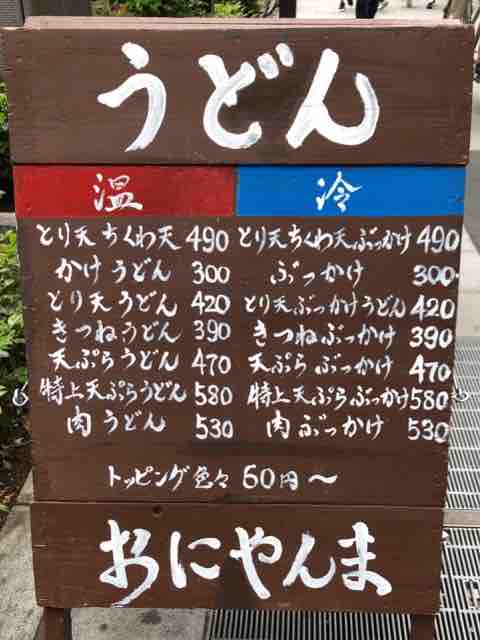 うどん
温 冷
とり天ちくわ天 490 とり天ちくわ天ぶっかけ 490
かけうどん 300 ぶっかけ 300
とり天うどん 420 とり天ぶっかけうどん 420
きつねうどん 390 きつねぶっかけ 390
天ぷらうどん 470 天ぷらぶっかけ 470
特上天ぷらうどん 580 特上天ぷらぶっかけ 580
肉うどん 530 肉ぶっかけ 530
トッピング色々 60円〜
おにやんま